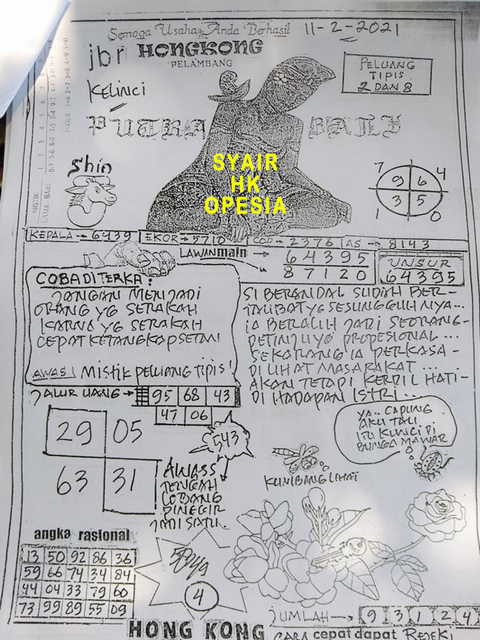 Semoga Usaha Anda Berhasil
11-2-2021
jbr HONGKONG
PELAMBANG
KELINCI
PELUANG
TIPIS
2 DAN 8
PUTRA BALI
SYAIR
HK
OPESIA
Shio
7 9 6 4
1 3 5 0
KEPALA → 6439 EKOR → 5710 COP → 2376 AS → 8143
LAWAN main → 64395
87120
UNSUR
64395
COBA DITERKA:
JANGAN MENJADI
ORANG YG SERAKAH
KARNA YG SERAKAH
CEPAT KETANGKAP SETAN
AWAS! MISTIK PELUANG TIPIS!
SI BERANDAL SUDAH BER-
TAUBAT YG SESUNGGUHNYA...
IA BERALIH JADI SEORANG-
PETINJU YG PROPESIONAL...
SEKARANG IA PERKASA-
DI LIHAT MASARAKAT...
AKAN TETAPI KERDIL HATI-
DI HADAPAN ISTRI...
JALUR UANG → 95 68 43
47 06
543
29 05
63 31
AWASS
TENGAH
LOBANG
DI NEGIR
JADI SATU.
YA.. CAPUNG
AKU TAU
ITU KUNCI DI
BUNGA MAWAR
KUMBANG LIHAI
angka rasional
13 50 92 86 36
59 66 74 34 84
44 04 33 79 60
73 99 89 55 09
4
JUMLAH → 9 3 1 2 4
HONG KONG
CARA cepat dapat Rezeki